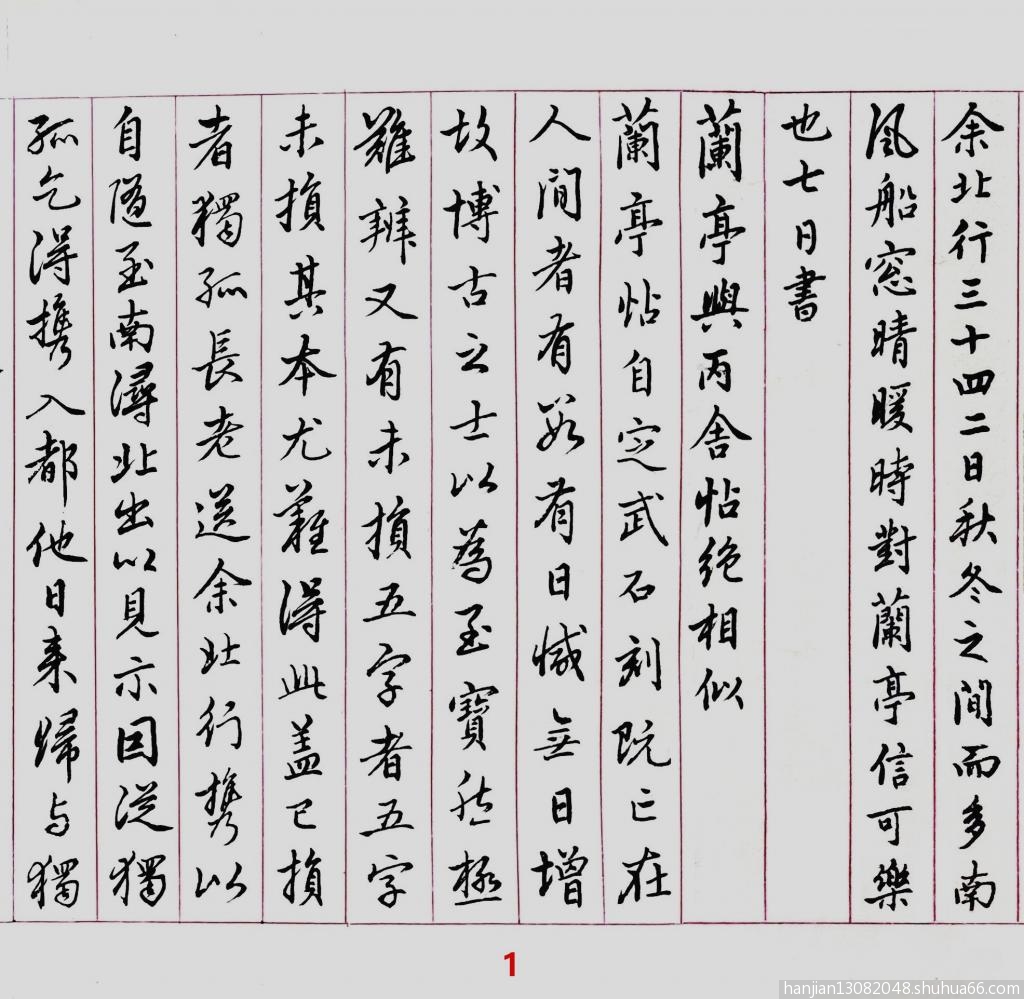 余北行三十四二日秋冬之間而多南
風船窓晴暖時對蘭亭信可樂
也七日書
蘭亭與丙舍帖絶相似
蘭亭帖自定武石刻既亡在
人間者有數有日減無日增
故博古之士以為至寶然極
難辨又有未損五字者五字
未損其本尤難得此盖已損
者獨孤長老送余北行携以
自隨至南潯北出以見示因從獨
孤乞得携入都他日来歸与獨
1
hanjian13082048.shuhua66.com